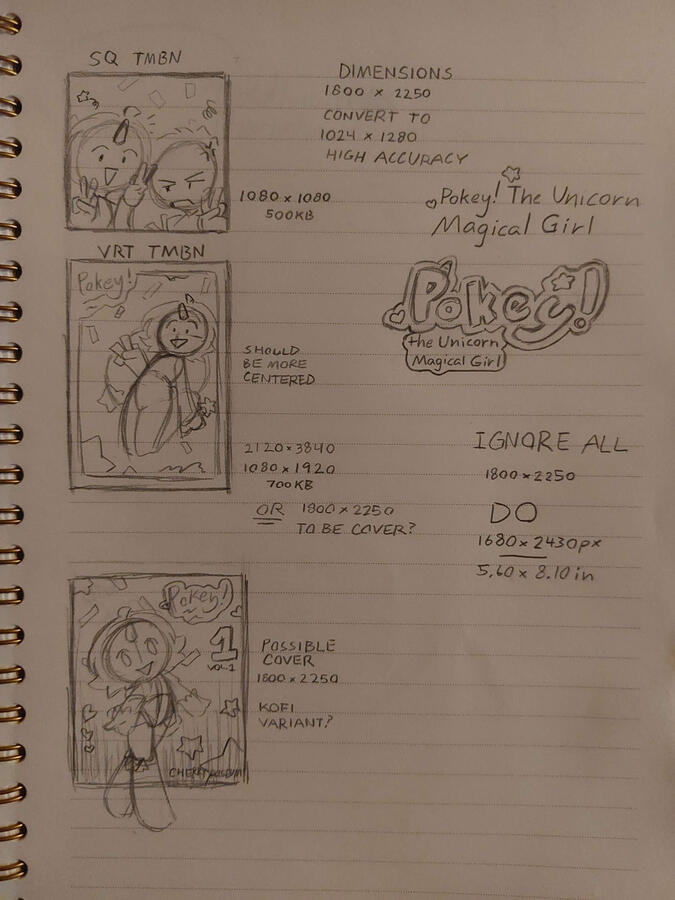 SQ TMBN
DIMENSIONS
1800 × 2250
CONVERT TO
1024 × 1280
HIGH ACCURACY
1080 × 1080
500KB
Pokey! The Unicorn
Magical Girl
VRT TMBN
Pokey!
Pokey!
the Unicorn
Magical Girl
SHOULD
BE MORE
CENTERED
2120 × 3840
1080 × 1920
700KB
OR 1800 × 2250
TO BE COVER?
IGNORE ALL
1800 × 2250
DO
1680 × 2430px
5.60 × 8.10 in
Pokey!
1
VOL.1
POSSIBLE
COVER
1800 × 2250
KOFI
VARIANT?